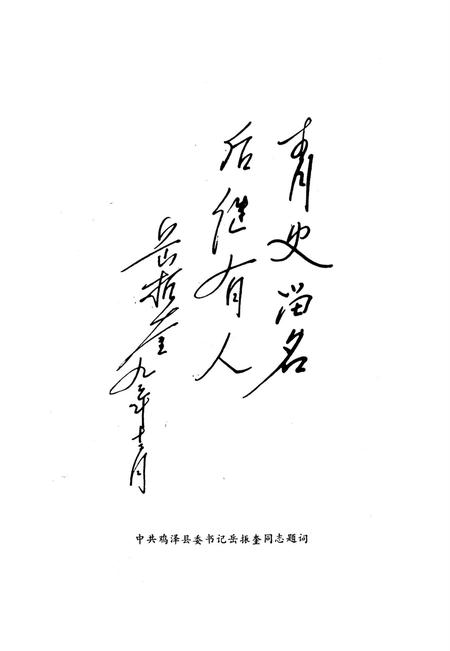 青史留名
后继有人
岳振奎九三年十二月
中共鸡泽县委书记岳振奎同志题词